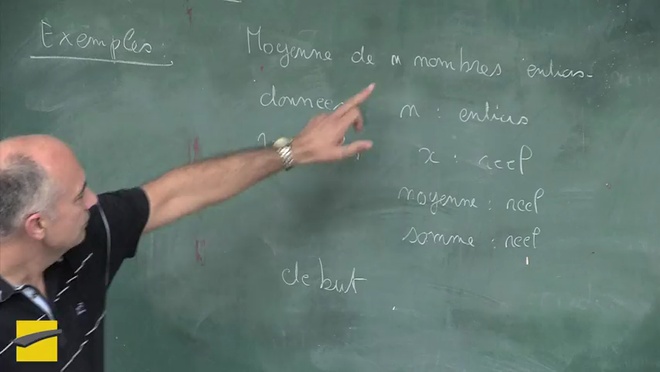 Exemples:
Moyenne de n nombres entiers.
données n : entiers
x : réel
moyenne : réel
somme : réel
debut